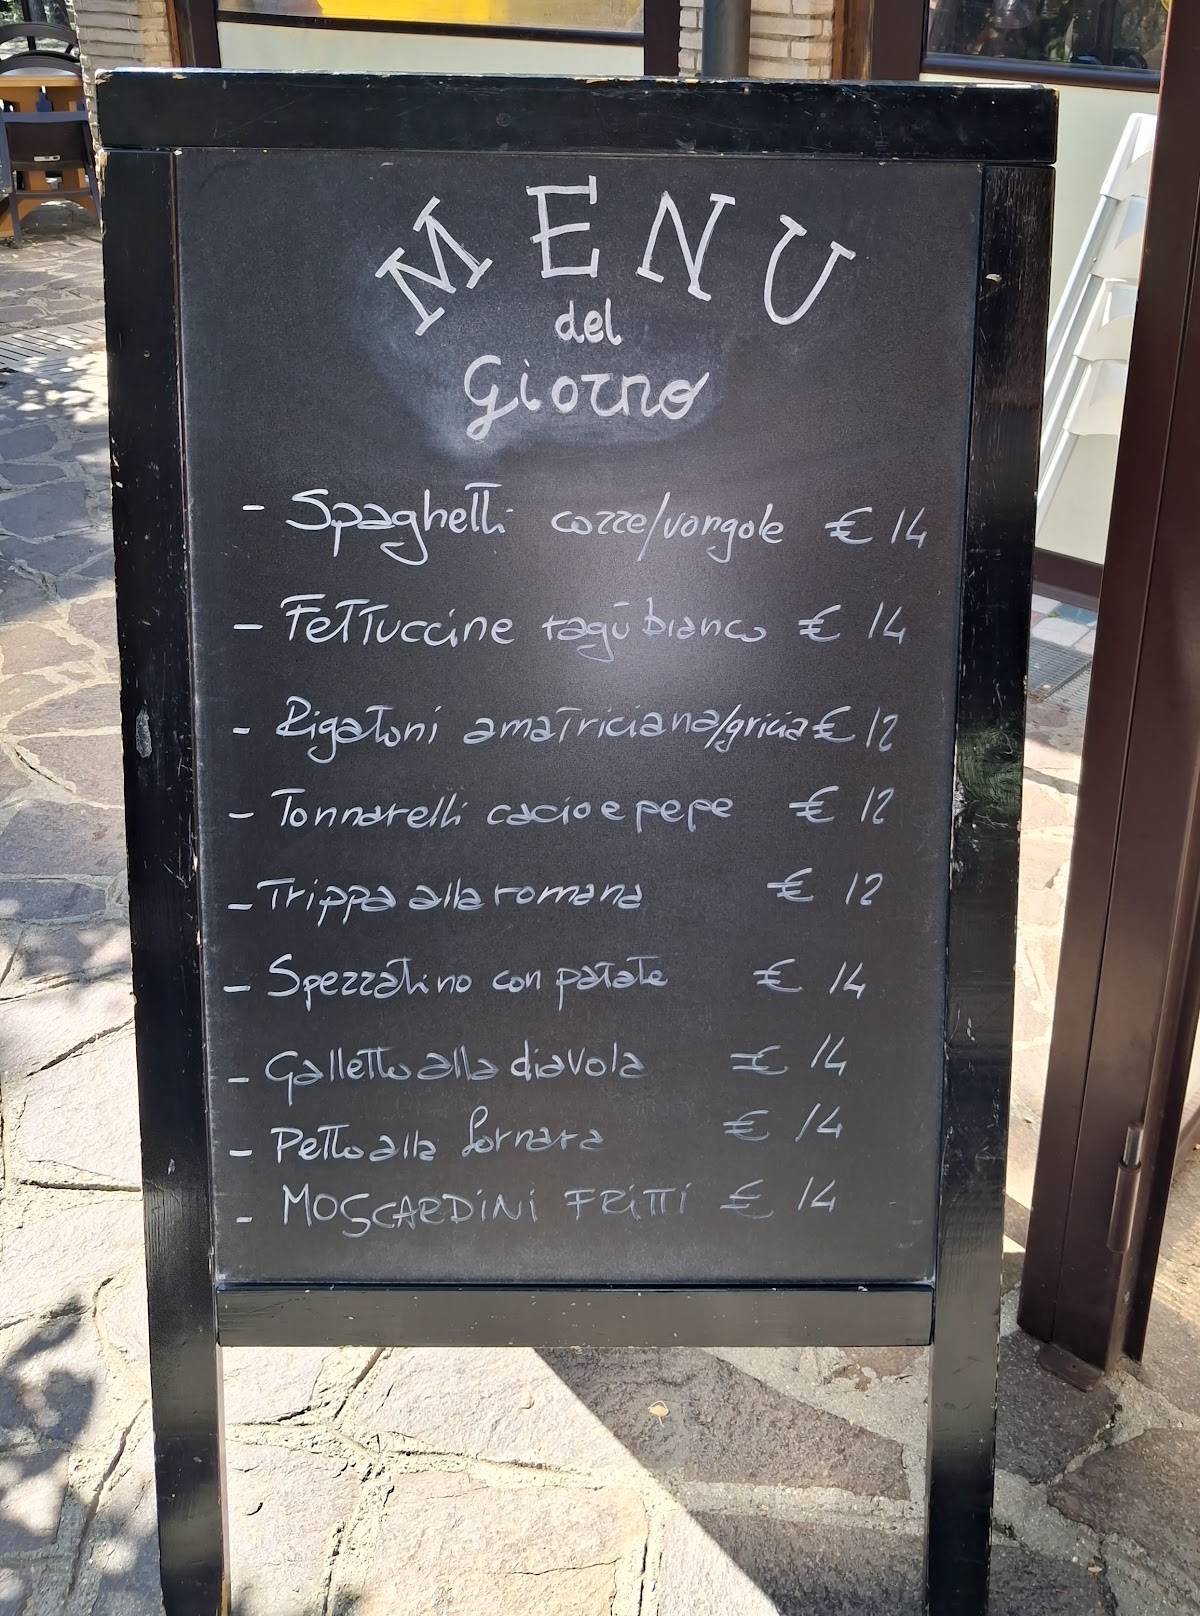 MENU
del
Giorno
- Spaghetti cozze/vongole € 14
- Fettuccine ragù bianco € 14
- Rigatoni amatriciana/gricia € 12
- Tonnarelli cacio e pepe € 12
- Trippa alla romana € 12
- Spezzatino con patate € 14
- Galletto alla diavola € 14
- Petto alla fornara € 14
- MOSCARDINI FRITTI € 14